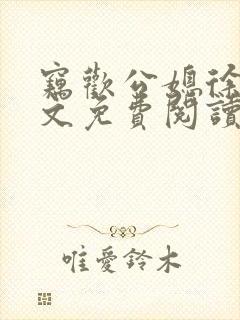 竊歡公媳徐
文免費閱讀
唯愛鈴木